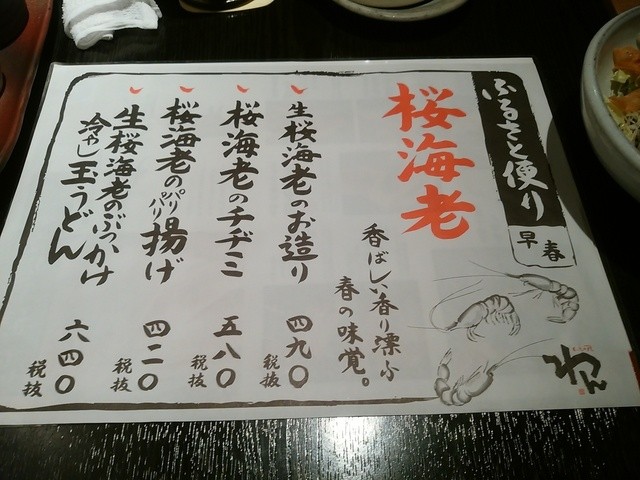 ふるさと便り
早春
桜海老
香ばしい香り漂ふ
春の味覚。
生桜海老のお造り
四九〇
税抜
桜海老のチヂミ
五八〇
税抜
桜海老のパリパリ揚げ
四二〇
税抜
生桜海老のぶっかけ
冷やし玉うどん
六四〇
税抜
わん